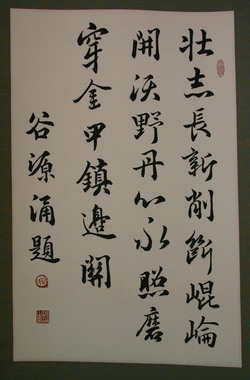 壮志長新削断崐崘
開沃野丹心永照磨
穿金甲鎮邊關
谷源涌題